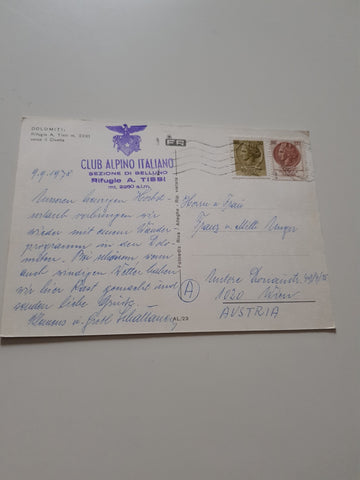 DOLOMITI,
Rifugio A. Tissi m. 2281
verso il Civetta
CLUB ALPINO ITALIANO
SEZIONE DI BELLUNO
Rifugio A. TISSI
mt. 2250 s.l.m.
9.9.1978
Unseren heurigen Herbst-
urlaub verbringen wir
wieder mit einem Wander
programm in den Dolo-
miten. Bei schönem wenn
auch windigen Wetter haben
wir hier Rast gemacht und
senden liebe Grüße. –
Klemens u. Gretl
Herrn u. Frau
Franz u. Milli Unger
Untere Donaustr.
1020 Wien
AUSTRIA
A
AL/23